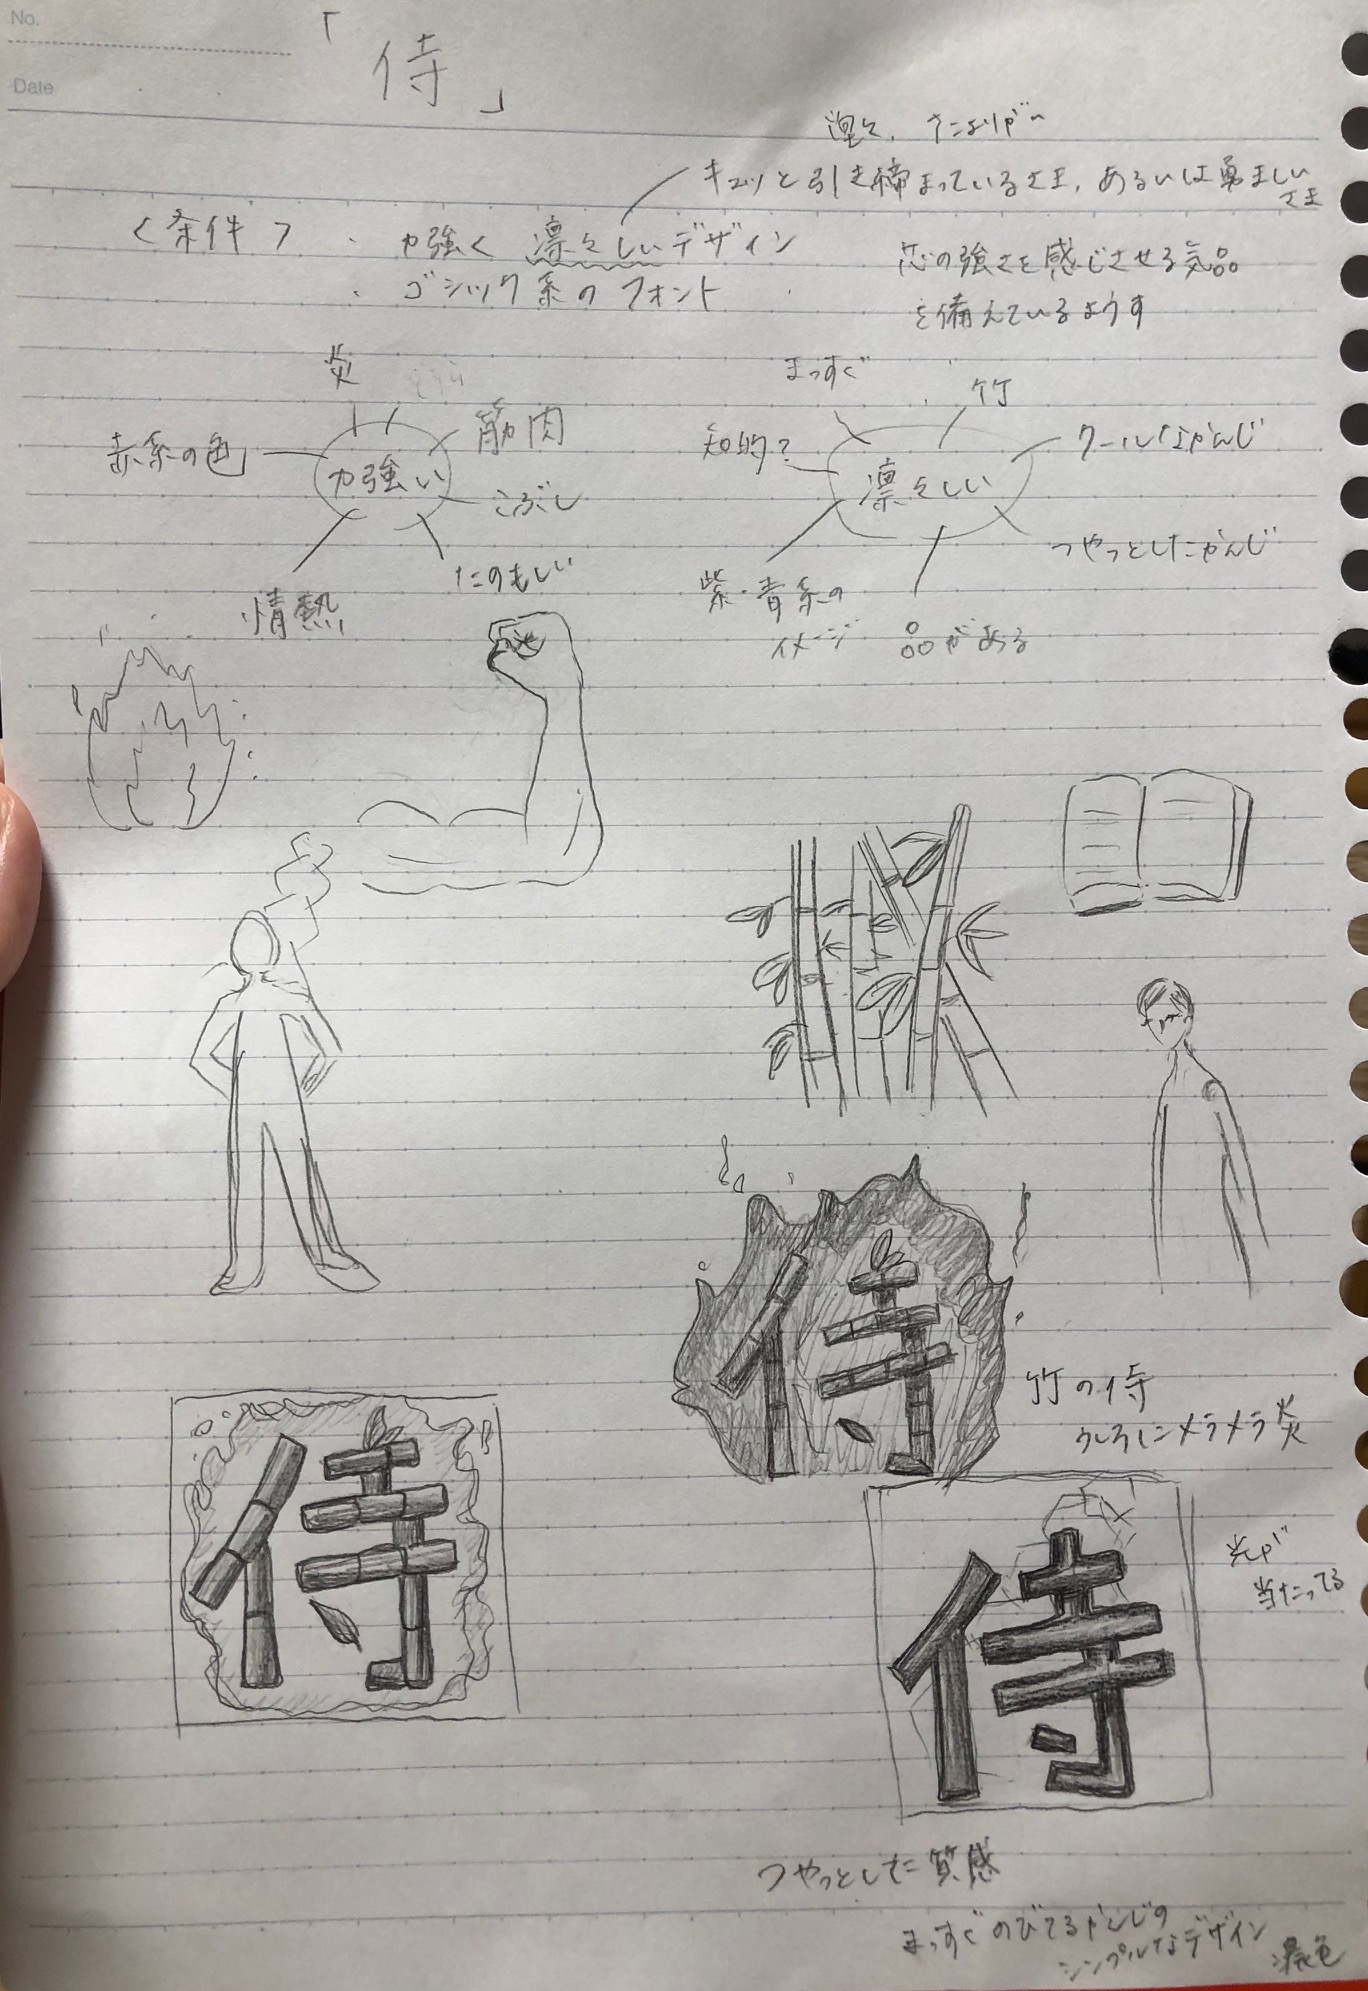 No.
Date
「侍」
キュッと引き締まっているさま、あるいは勇ましい
さま
<条件> ・力強く凛々しいデザイン
・ゴシック系のフォント
芯の強さを感じさせる気品
を備えているようす
炎
筋肉
赤系の色
力強い
こぶし
たのもしい
情熱
まっすぐ
竹
知的?
クールなかんじ
凛々しい
つやっとしたかんじ
紫・青系の
イメージ
品がある
侍
竹の侍
うしろにメラメラ炎
侍
侍
光が
当たってる
つやっとした質感
まっすぐのびてるかんじの
シンプルなデザイン
濃色